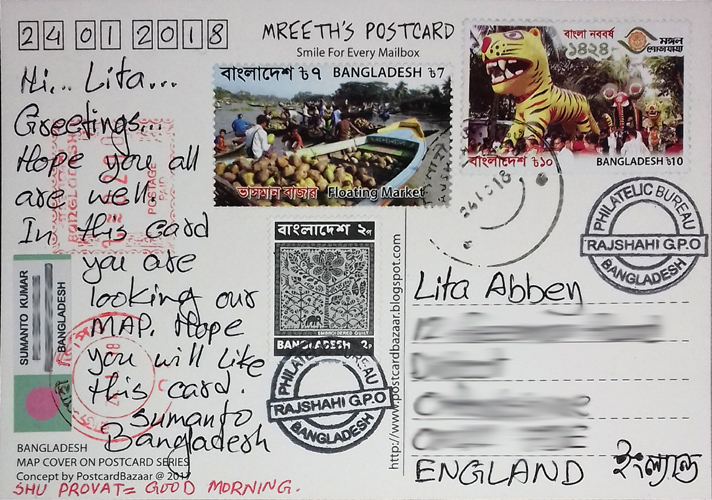 24012018
MREETH'S POSTCARD
Smile For Every Mailbox
Hi... Lita...
Greetings...
Hope you all
are well.
In this card
you are
looking our
MAP. Hope
you will like
this card.
Sumanto
Bangladesh
বাংলাদেশ ৳৭ BANGLADESH ৳7
ভাসমান বাজার Floating Market
বাংলা নববর্ষ
১৪২৪
মঙ্গল
শোভাযাত্রা
বাংলাদেশ ৳১০ BANGLADESH ৳10
24 01 18
PHILATELIC BUREAU
RAJSHAHI G.P.O
BANGLADESH
POSTAGE
PAID
বাংলাদেশ ২৳
EMBROIDERED QUILT
BANGLADESH 2৳
PHILATELIC BUREAU
RAJSHAHI G.P.O
BANGLADESH
SUMANTO KUMAR
BANGLADESH
http://www.postcardbazaar.blogspot.com
Lita Abbey
ENGLAND ইংল্যান্ড
BANGLADESH
MAP COVER ON POSTCARD SERIES
Concept by PostcardBazaar @ 2017
SHU PROVAT = GOOD MORNING.